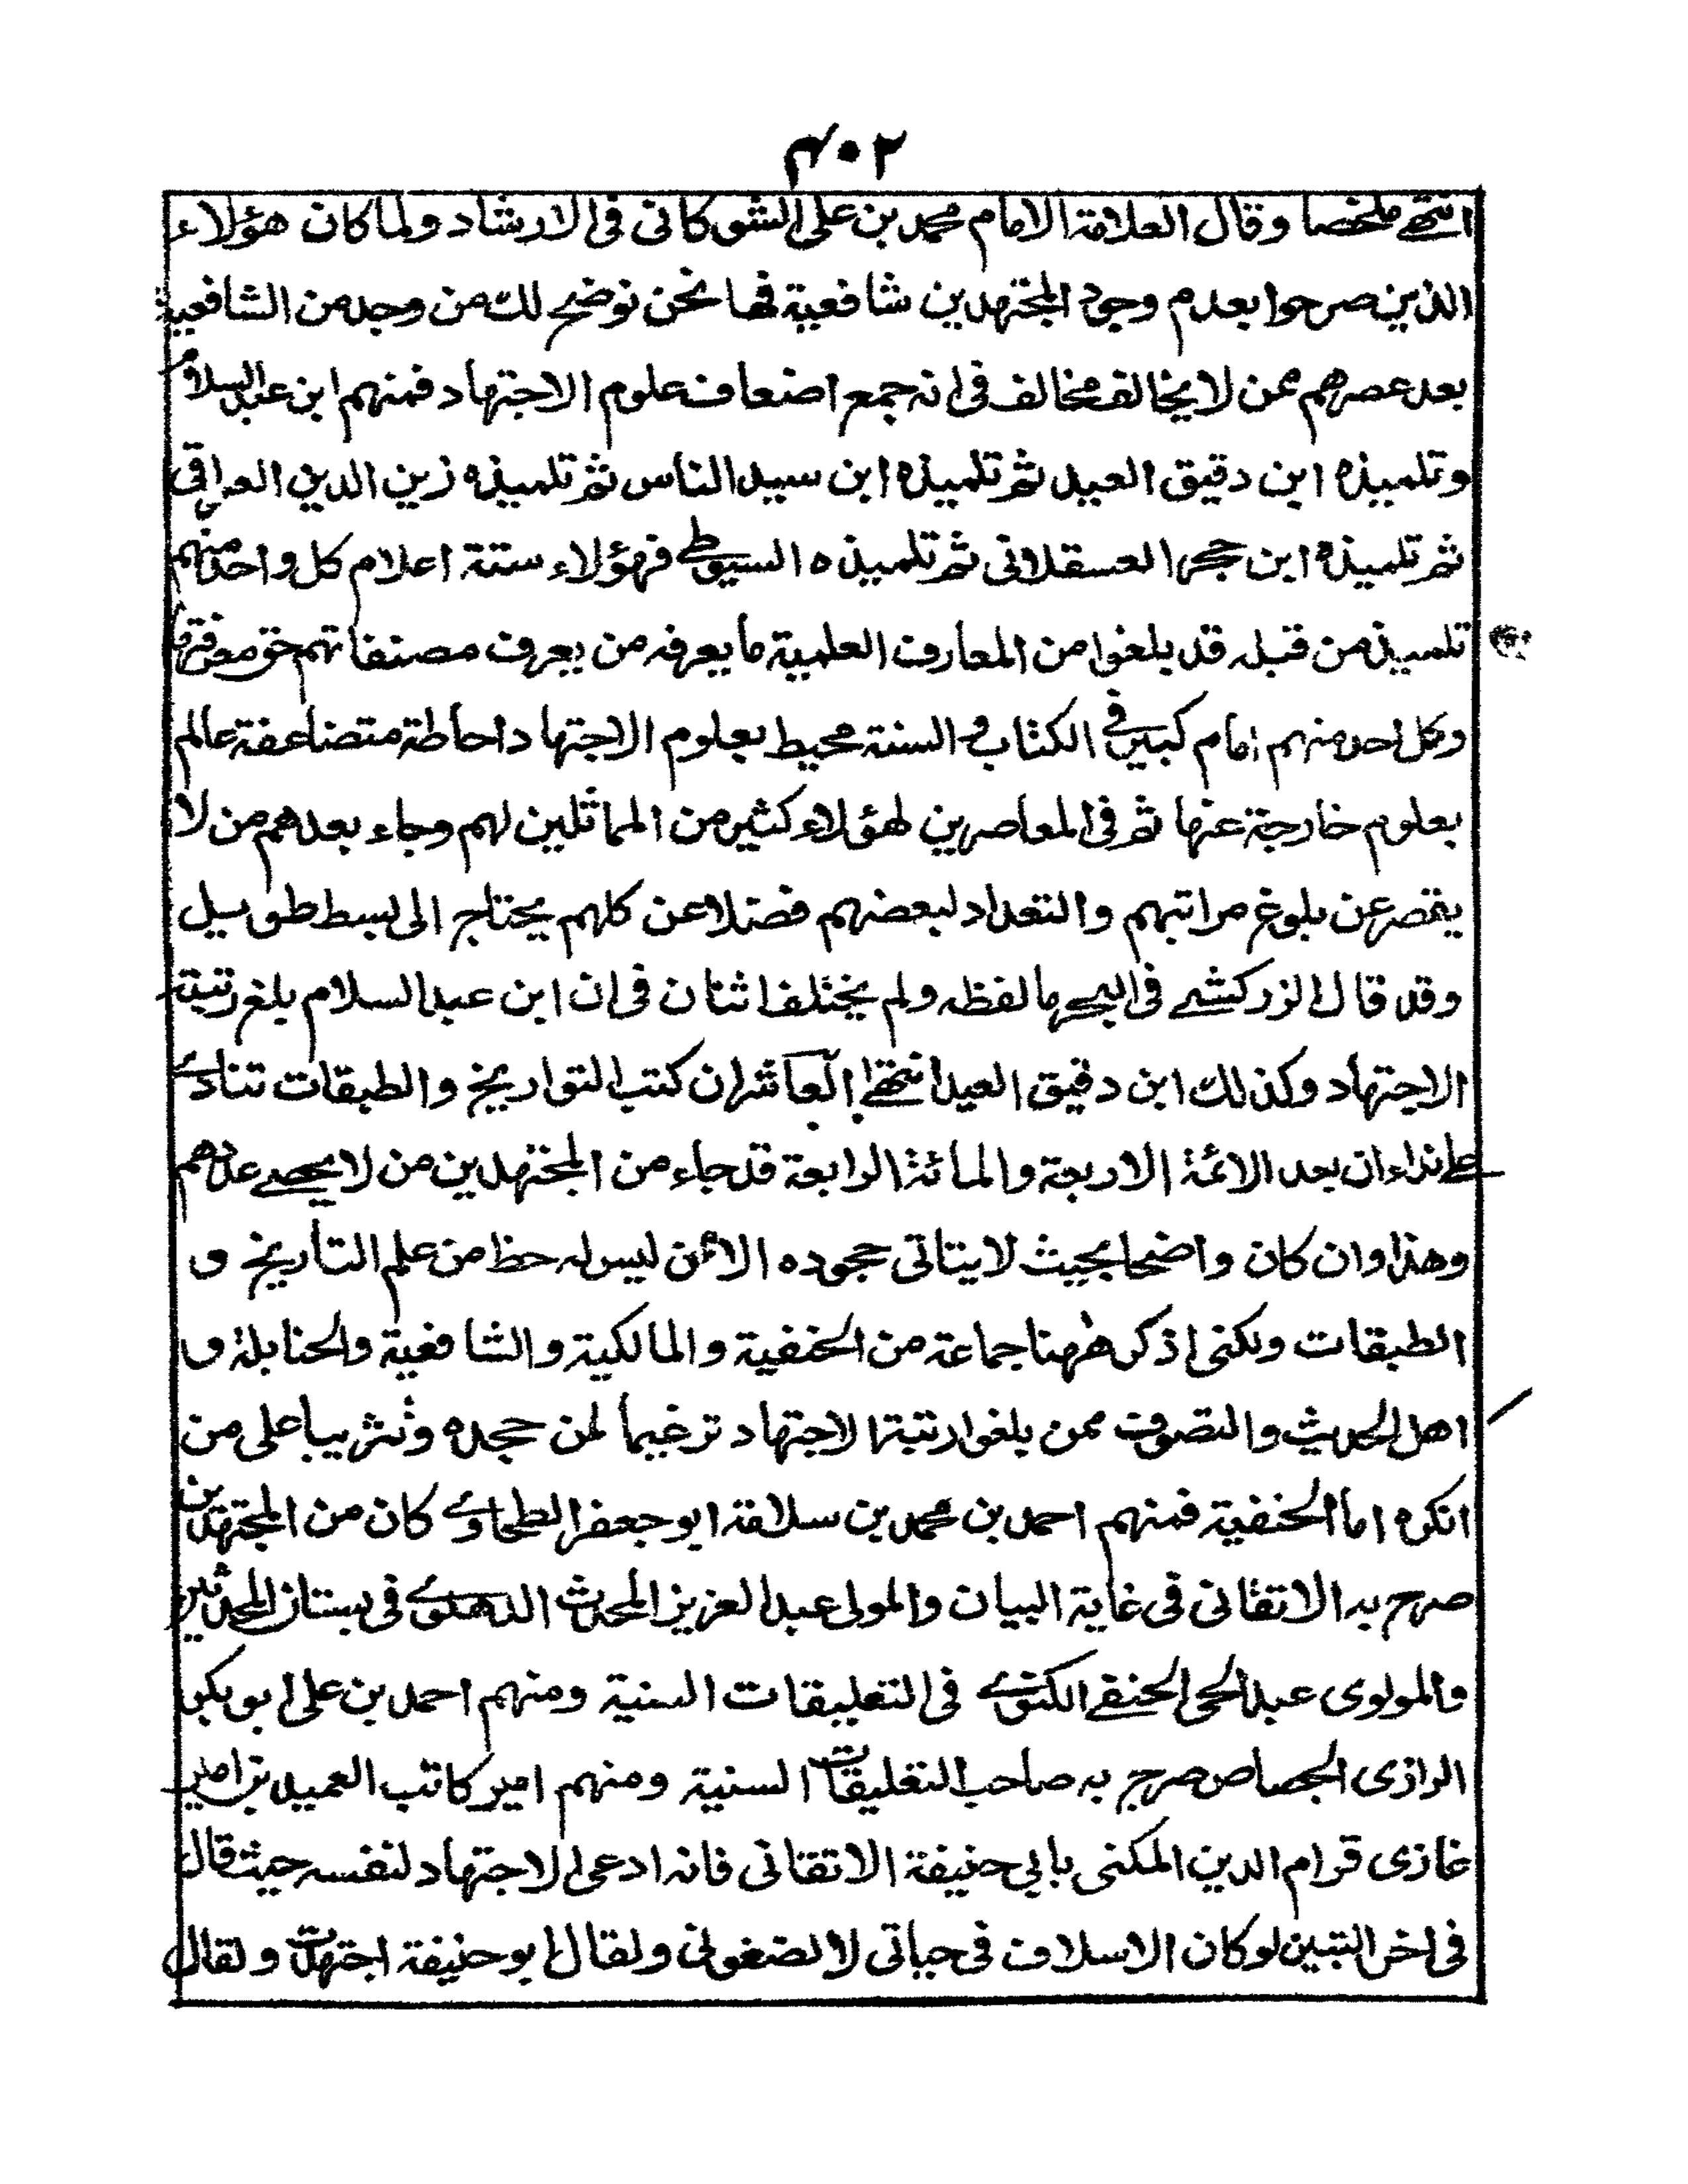 ٤٠٢
انتهى ملخصا وقال العلامة الامام محمد بن على الشوكانى فى الارشاد ولما كان هؤلاء
الذين صرحوا بعدم وجود المجتهدين شافعية فها نحن نوضح لك من وجد من الشافعية
بعد عصرهم ممن لا يخالف مخالف فى انه جمع اضعاف علوم الاجتهاد فمنهم ابن عبد السلام
وتلميذه ابن دقيق العيد ثم تلميذه ابن سيد الناس ثم تلميذه زين الدين العراقى
ثم تلميذه ابن حجر العسقلانى ثم تلميذه السيوطى فهؤلاء ستة اعلام كل واحد منهم
تلميذ من قبله قد بلغوا من المعارف العلمية ما يعرفه من يعرف مصنفاتهم حق معرفتها
وكل احد منهم امام كبير فى الكتاب و السنة محيط بعلوم الاجتهاد احاطة متضاعفة عالم
بعلوم خارجة عنها ثم فى المعاصرين لهؤلاء كثير من المماثلين لهم وجاء بعدهم من لا
يقصر عن بلوغ مراتبهم والتعداد لبعضهم فضلا عن كلهم يحتاج الى بسط طويل
وقد قال الزركشى فى البحر ما لفظه ولم يختلف اثنان فى ان ابن عبد السلام بلغ رتبة
الاجتهاد وكذلك ابن دقيق العيد انتهى العاشر ان كتب التواريخ والطبقات تنادى
على نداء ان بعد الائمة الاربعة والمائة الرابعة قد جاء من المجتهدين من لا يحصى عددهم
وهذا وان كان واضحا بحيث لا يتاتى جحوده الا من ليس له حظ من علم التاريخ و
الطبقات ولكنى اذكر ههنا جماعة من الحنفية والمالكية والشافعية والحنابلة و
اهل الحديث والتصوف ممن بلغوا رتبة الاجتهاد ترغيما لمن جحده وتثريبا على من
انكره اما الحنفية فمنهم احمد بن محمد بن سلامة ابو جعفر الطحاوى كان من المجتهدين
صرح به الاتقانى فى غاية البيان والمولى عبد العزيز المحدث الدهلوى فى بستان المحدثين
والمولوى عبد الحى الحنفى الكنوى فى التعليقات السنية ومنهم احمد بن على ابو بكر
الرازى الجصاص صرح به صاحب التعليقات السنية ومنهم امير كاتب العميد بن امير
غازى قوام الدين المكنى بابى حنيفة الاتقانى فانه ادعى الاجتهاد لنفسه حيث قال
فى اخر التبيين لو كان الاسلاف فى حياتى لانصفونى ولقال ابو حنيفة اجتهدت ولقال